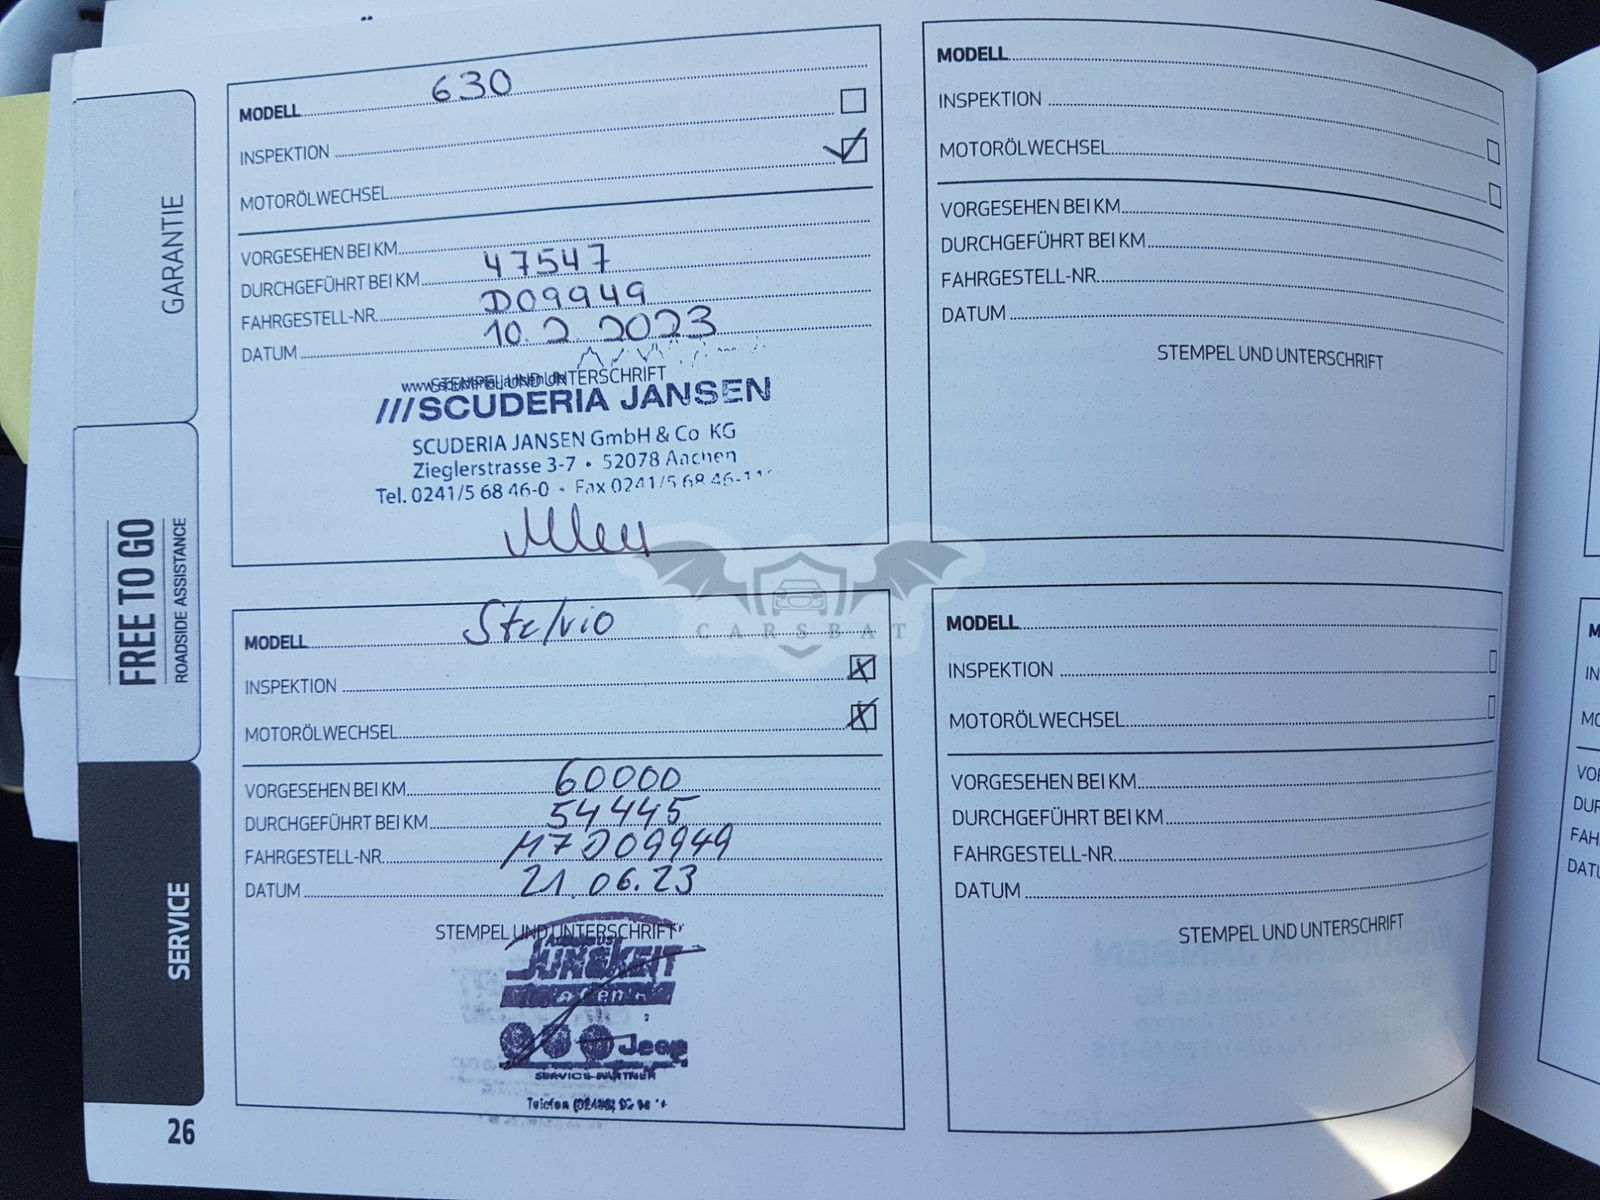 GARANTIE
FREE TO GO
ROADSIDE ASSISTANCE
SERVICE
26
MODELL 630
INSPEKTION
MOTORÖLWECHSEL
VORGESEHEN BEI KM
DURCHGEFÜHRT BEI KM 47547
FAHRGESTELL-NR. D09949
DATUM 10.2.2023
STEMPEL UND UNTERSCHRIFT
///SCUDERIA JANSEN
SCUDERIA JANSEN GmbH & Co KG
Zieglerstrasse 3-7 • 52078 Aachen
Tel. 0241/5 68 46-0 • Fax 0241/5 68 46-11
MODELL Stelvio
INSPEKTION
MOTORÖLWECHSEL
VORGESEHEN BEI KM 60000
DURCHGEFÜHRT BEI KM 54445
FAHRGESTELL-NR. M7D09949
DATUM 21.06.23
STEMPEL UND UNTERSCHRIFT
JUNGKEIT
Jeep
SERVICE-PARTNER
Telefon
MODELL
INSPEKTION
MOTORÖLWECHSEL
VORGESEHEN BEI KM
DURCHGEFÜHRT BEI KM
FAHRGESTELL-NR.
DATUM
STEMPEL UND UNTERSCHRIFT
MODELL
INSPEKTION
MOTORÖLWECHSEL
VORGESEHEN BEI KM
DURCHGEFÜHRT BEI KM
FAHRGESTELL-NR.
DATUM
STEMPEL UND UNTERSCHRIFT
CARSBAT